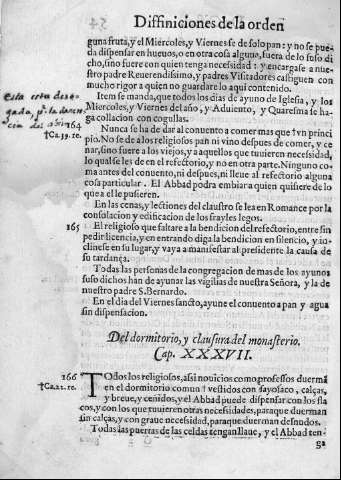 Diffiniciones de la orden
guna fruta, y el Miercoles, y Viernes se de solo pan: y no se pueda
dispensar en hueuos, o en otra cosa alguna, fuera de lo suso di
cho, sino fuere con quien tenga necessidad: y encargase a nue
stro padre Reuerendissimo, y padres Visitadores castiguen con
mucho rigor a quien no guardare lo aqui contenido.
Item se manda, que todos los dias de ayuno de Iglesia, y los
Miercoles, y Viernes del año, y Aduiento, y Quaresma se ha-
ga collacion con cogullas.
164
†Ca. 39. re.
Nunca se ha de dar al conuento a comer mas que vn princi
pio. No se de a los religiosos pan ni vino despues de comer, y ce
nar, sino fuere a los viejos, y a aquellos que tuuieren necessidad,
lo qual se les de en el refectorio, y no en otra parte. Ninguno co
ma antes del conuento, ni despues, ni lleue al refectorio alguna
cosa particular. El Abbad podra embiar a quien quisiere de lo
que a el le pusieren.
En las cenas, y lectiones del claustro se lea en Romance por la
consolacion y edificacion de los frayles legos.
165
El religioso que faltare a la bendicion del refectorio, entre sin
pedir licencia, y en entrando diga la bendicion en silencio, y in-
clinese en su lugar, y vaya a manifestar al presidente la causa de
su tardança.
Todas las personas de la congregacion de mas de los ayunos
suso dichos han de ayunar las vigilias de nuestra Señora, y la de
nuestro padre S. Bernardo.
En el dia del Viernes sancto, ayune el conuento a pan y agua
sin dispensacion.
Del dormitorio, y clausura del monasterio.
Cap. XXXVII.
166
†Ca. 22. re.
TOdos los religiosos, assi nouicios como professos duerman
en el dormitorio comun † vestidos con sayo saco, calças,
y breue, y ceñidos, y el Abbad puede dispensar con los fla
cos, y con los que tuuieren otras necessidades, para que duerman
sin calças, y con graue necessidad, para que duerman desnudos.
Todas las puertas de las celdas tengan llaue, y el Abbad ten-
ga